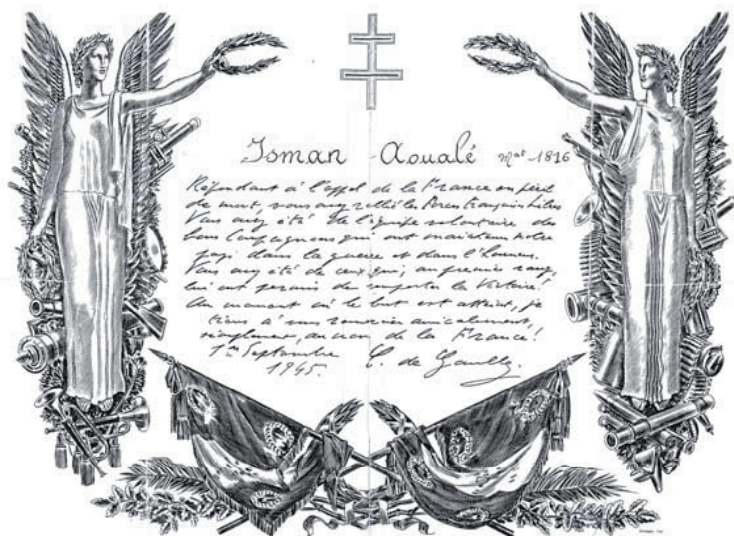 Isman Aoualé Mat 1816
Répondant à l'appel de la France en péril
de mort, vous avez rallié les Forces françaises Libres
Vous avez été de l'équipe volontaire des
bons Compagnons qui ont maintenu notre
pays dans la guerre et dans l'honneur.
Vous avez été de ceux qui, au premier rang,
lui ont permis de remporter la Victoire!
Au moment où le but est atteint, je
tiens à vous remercier amicalement,
simplement, au nom de la France!
1er Septembre
1945. C. de Gaulle.